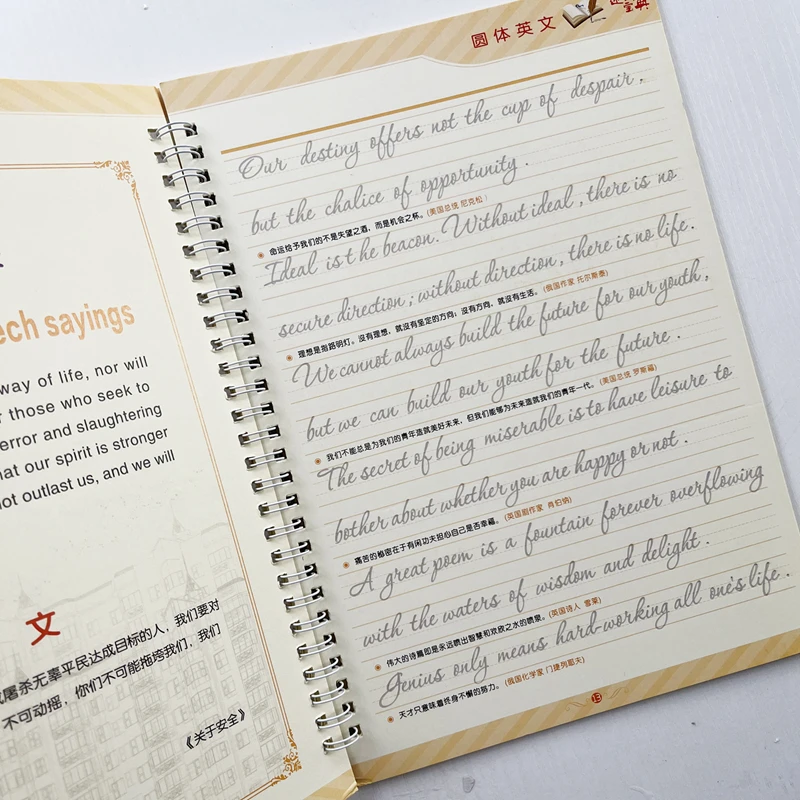 ech sayings
way of life, nor will
those who seek to
error and slaughtering
hat our spirit is stronger
not outlast us, and we will
文
屠杀无辜平民达成目标的人，我们要对
不可动摇，你们不可能拖垮我们，我们
《关于安全》
圆体英文
宝典
Our destiny offers not the cup of despair,
but the chalice of opportunity.
命运给予我们的不是失望之酒，而是机会之杯。(美国总统 尼克松)
Ideal is t he beacon. Without ideal, there is no
secure direction; without direction, there is no life.
理想是指路明灯。没有理想，就没有坚定的方向；没有方向，就没有生活。(俄国作家 托尔斯泰)
We cannot always build the future for our youth,
but we can build our youth for the future.
我们不能总是为我们的青年造就美好未来，但我们能够为未来造就我们的青年一代。(美国总统 罗斯福)
The secret of being miserable is to have leisure to
bother about whether you are happy or not.
痛苦的秘密在于有闲功夫担心自己是否幸福。(英国剧作家 肖伯纳)
A great poem is a fountain forever overflowing
with the waters of wisdom and delight.
伟大的诗篇即是永远喷出智慧和欢欣之水的喷泉。(英国诗人 雪莱)
Genius only means hard-working all one's life.
天才只意味着终身不懈的努力。(俄国化学家 门捷列耶夫)
13